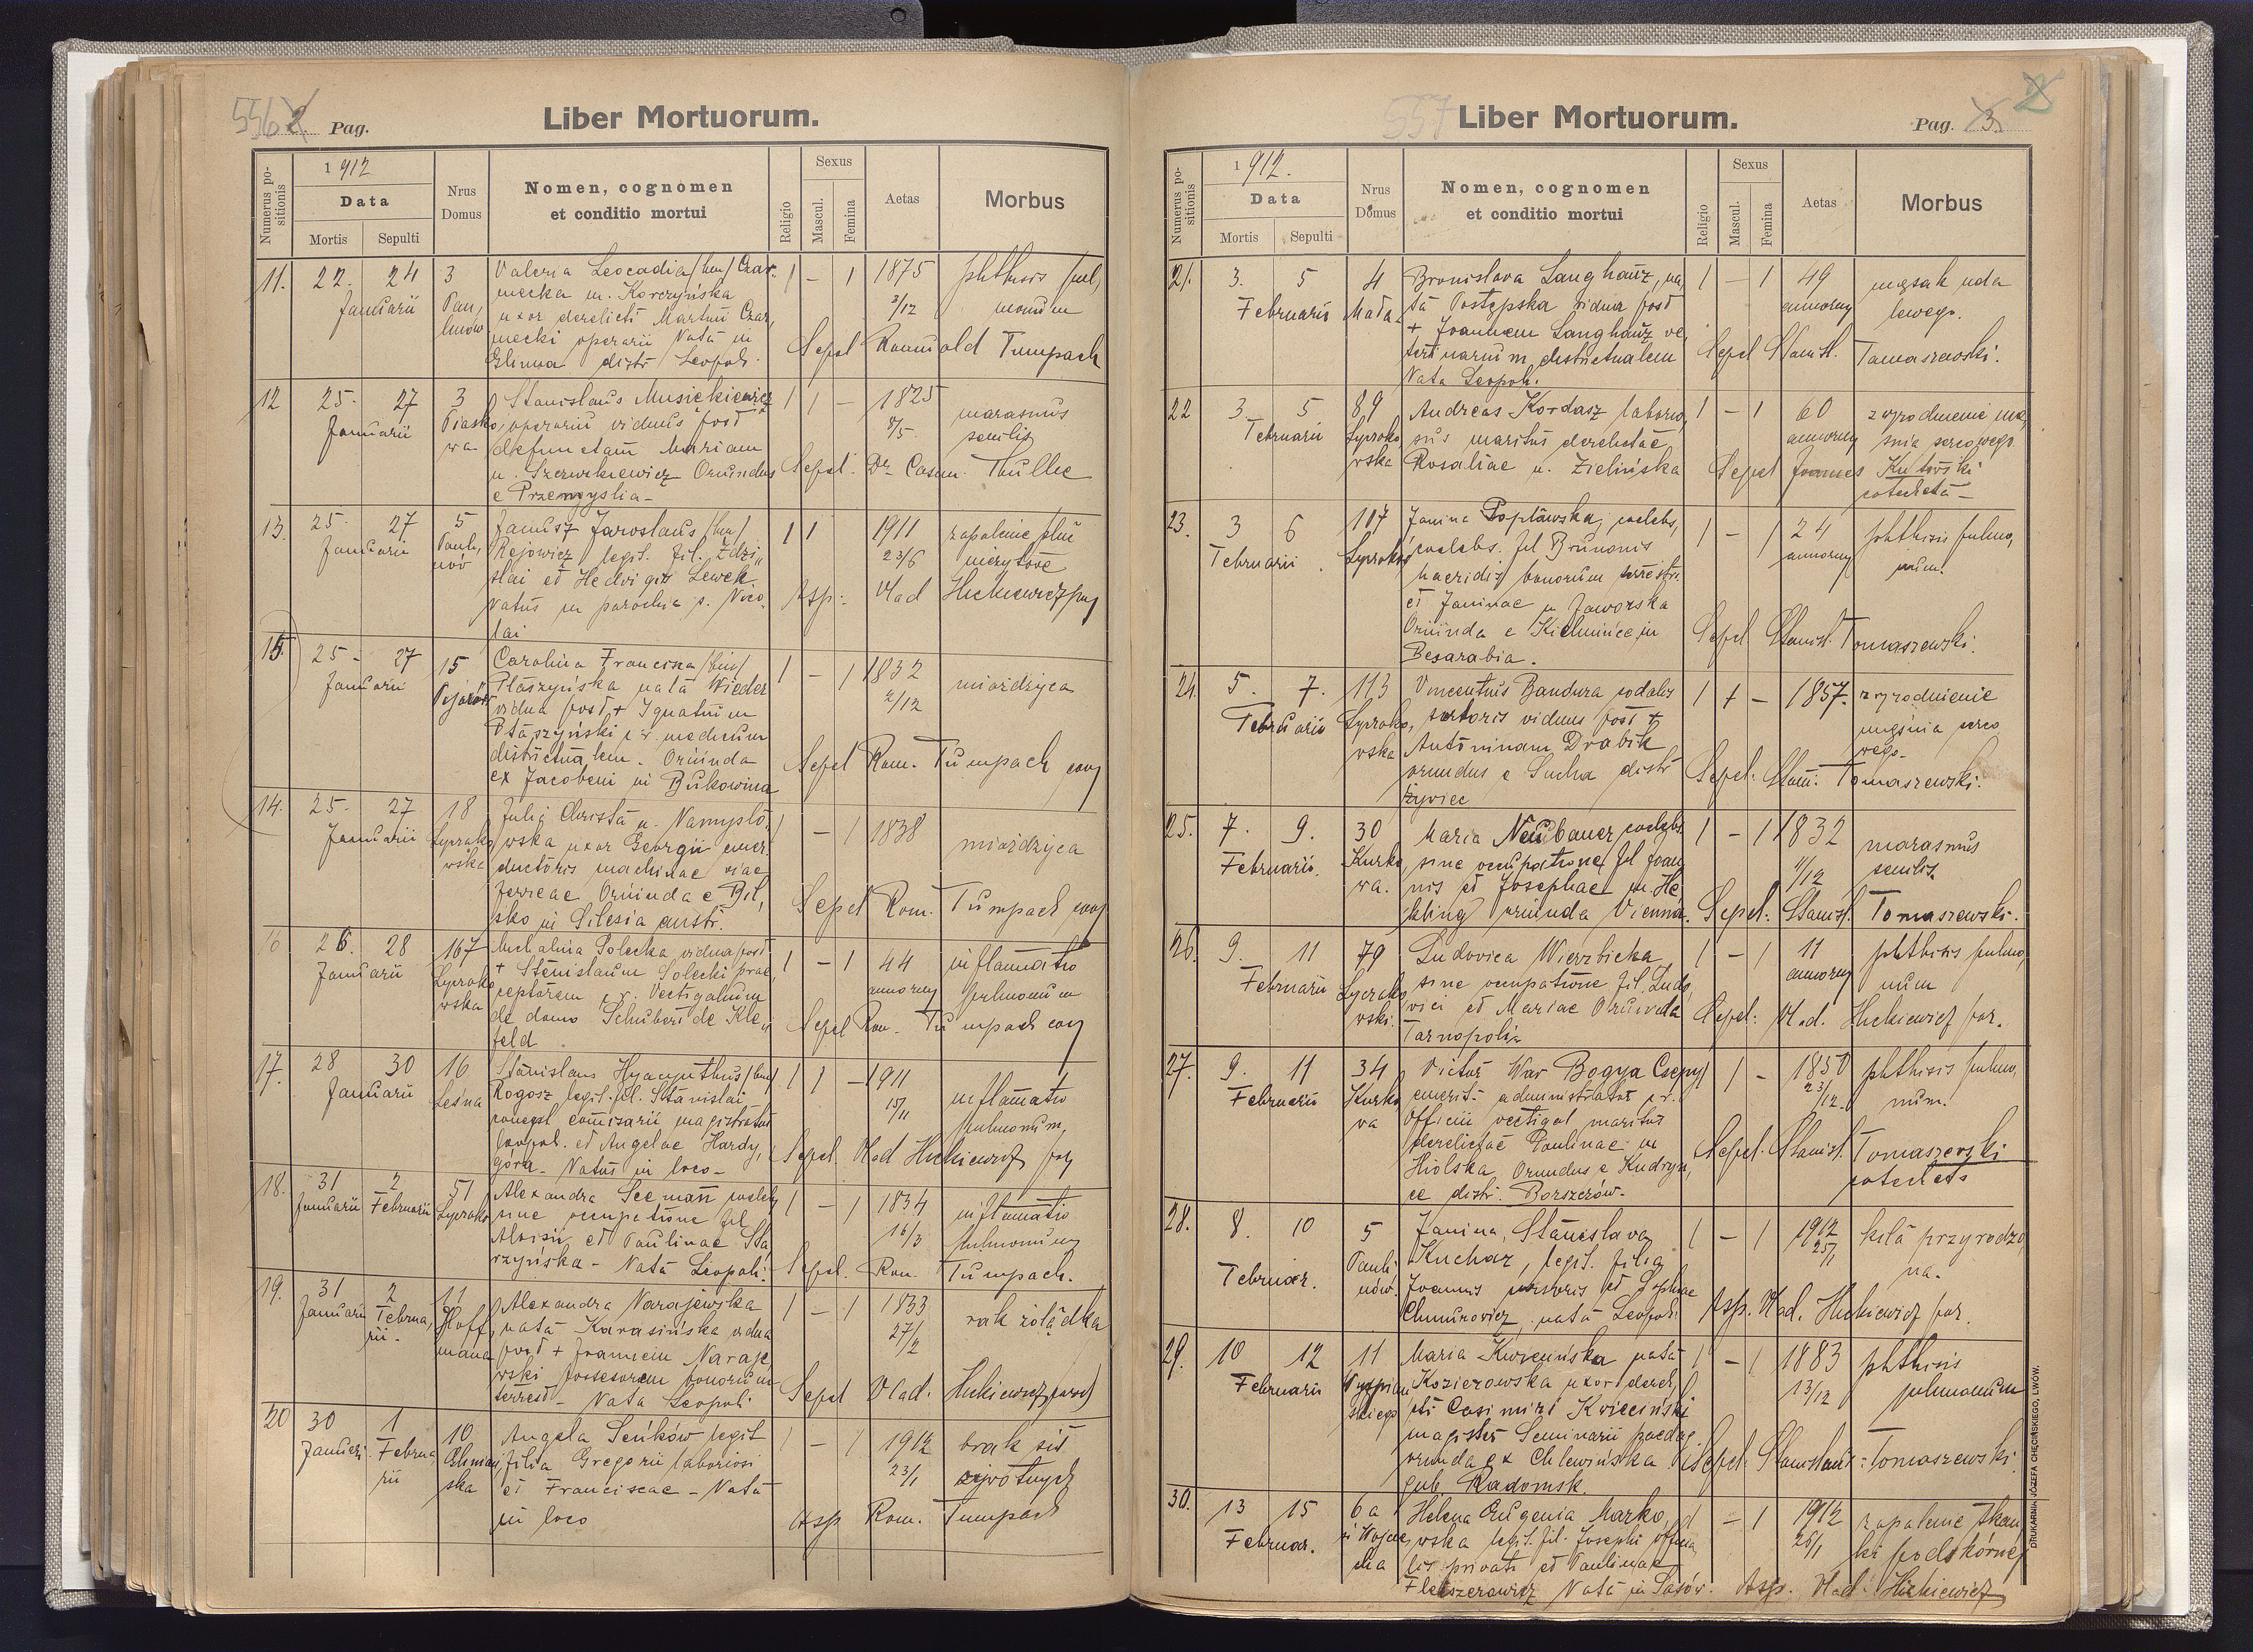 556 2. Pag.
Liber Mortuorum.
Numerus positionis
1912
Data
Mortis Sepulti
Nrus Domus
Nomen, cognomen et conditio mortui
Religio
Sexus
Mascul. Femina
Aetas
Morbus
11. 22. 24 Januarii
3
Valeria Leocadia /bin/ Czar-
necka n. Korczyńska
uxor derelicti Martini Czar,
necki operarii Nata in
Glinna distr Leopol.
1 - 1 1875 3/12
phthisis pul,
monum
Sepel Romuald Tumpach
12 25. 27 Januarii
3 Piasko, wa
Stanislaus Musickiewicz
operarii viduus post
defunctam Mariam
Oriundus
e Przemyslia -
1 1 - 1825 8/5
marasmus
senilis
Sepel. Dr. Casim. Thullie
13. 25. 27 Januarii
5 Pauli, nów
Janusz Jaroslaus /bin/
Rejowicz legit. fil. Zdzi,,
slai et Hedvigis Lewek.
Natus in parochia s. Nico,
lai
1 1 1911 23/6
zapalenie płuc
nieżytowe
Asp: Vlad Hickiewicz
15. 25 - 27 Januarii
15
Carolina Francisca /bin/
Ptaszyńska nata Wieder
vidua post + Ignatium
Ptaszyński c. r. medicum
districtualem. Oriunda
ex Jacobeni in Bukowina
1 - 1 1832 2/12
miażdżyca
Sepel Rom. Tumpach coop
14. 25. 27 Januarii
18 Łyczako wska
Julia Christa n. Namysło,
wska uxor Georgii emer.
ductoris machinae viae
ferreae Oriunda e Biel,
sko in Silesia austr.
- 1 1838
miażdżyca
Sepel Rom. Tumpach coop
16 26. 28 Januarii
167 Łyczako wska
Michalina Solecka vidua post
+ Stanislaum Solecki prae,
ceptorem c. r. Vectigalium
de domo Schubert de Kle,,
feld
1 - 1 44 annorum
inflamatio
pulmonum
Sepel Rom. Tumpach coop
17. 28 30 Januarii
16 Leśna
Stanislaus Hyacynthus /bin/
Rogosz legit. fil. Stanislai
concept comisarii magistratus
leopol. et Angelae Hardy,
góra - Natus in loco -
1 1 - 1911 15/11
inflamatio
pulmonum,
Sepel. Vlad Hickiewicz
18. 31 Januarii 2 Februarii
51 Łyczako
Alexandra Seemann coelebs
sine occupatione fil
Aloisii et Paulinae Sta
rzyńska - Nata Leopoli.
1 - 1 1834 16/3
inflamatio
pulmonum
Sepel. Rom. Tumpach.
19. 31 Januarii 2 Februa, rii -
11 Hoff, mana
Alexandra Narajewska
nata Karasińska vidua
post + Joannem Naraje,
wski possesorem bonorum
terrest - Nata Leopoli
1 - 1 1833 27/2
rak żołądka
Sepel Vlad. Hickiewicz
20 30 Januari. 1 Februa rii
10. Glinian, ska
Angela Seńków legit
filia Gregorii laboriosi
et Franciscae - Nata
in loco
1 - 1 1912 23/1
brak sił
żywotnych
Asp Rom. Tumpach
557
Liber Mortuorum.
Pag. 3. 2
Numerus positionis
1912.
Data
Mortis Sepulti
Nrus Domus
Nomen, cognomen et conditio mortui
Religio
Sexus
Mascul. Femina
Aetas
Morbus
21. 3. 5 Februarii
4
Bronislava Langhauz, na,
ta Postępska vidua post
+ Joannem Langhauz ve,
terinarium districtualem
Nata Leopoli.
1 - 1 49 annorum
mięsak uda
lewego.
Sepel Stanisl. Tomaszewski.
22 3. 5 Februarii
89 Łyczako wska
Andreas Kordasz laborio,
sus maritus derelictae,
Rosaliae n. Zielińska
1 - 1 60 annorum
zwyrodnienie mię,
śnia sercowego.
Sepel Joannes Kutowski
catecheta -
23. 3 6 Februarii.
107 Łyczako
Janina Popławska, coelebs,
coelebs. fil Brunonis
haeridis bonorum terrestr.
et Janinae n Jaworska
Oriunda e Kielmińce in
Besarabia.
1 - 1 24 annorum
phthisis pulmo,
num.
Sepel Stanisl. Tomaszewski.
24. 5. 7. Februarii
113 Łyczako, wska
Vincentius Bandura sodalis
sartoris viduus post +
Antoninam Drabik
oriundus e Sucha distr
Żywiec
1 + - 1857.
zwyrodnienie
mięśnia serco
wego -
Sepel. Stan. Tomaszewski.
25. 7. 9. Februarii.
30 Kurko wa.
Maria Neubauer coelebs
sine occupatione fil Joan
nis et Josephae n. He
bling oriunda Vienna.
1 - 1 1832 11/12
marasmus
senilis
Sepel: Stanisl. Tomaszewski.
26. 9. 11 Februarii
79 Łyczako wski.
Ludovica Wierzbicka
sine occupatione fil. Ludo,
vici et Mariae Oriunda
Tarnopoli -
1 - 1 11 annorum
phthisis pulmo,
num
Sepel: Vlad. Hickiewicz par.
27. 9. 11 Februarii
34 Kurko wa
Victor War Bogya Csepy
emerit. administrator c. r.
officii vectigal maritus
derelictae Paulinae n
Hiolska Oriundus e Kudryń,
ce distr. Borszczów -
1 - 1850 23/12.
phthisis pulmo,
num.
Sepel. Stanisl. Tomaszewski
catecheta
28. 8. 10 Februar.
5 Pauli nów.
Janina, Stanislava
Kuchar, legit. filia
Joannis et Sophiae
Chmurowicz, nata Leopoli
1 - 1 1912 25/1
kiła przyrodzo,
na.
Asp. Vlad. Hickiewicz par.
29. 10 12 Februarii
11 Wyspiań skiego
Maria Kwiecińska nata
Kozierowska uxor derel,
cti Casimiri Kwieciński
magister Seminarii paedag
oriunda ex Chlewińska
gub. Radomsk.
1 - 1 1883 13/12
phthisis
pulmonum
Sepel. Stanislaus Tomaszewski
30. 13 15 Februar.
6a
Helena Eugenia Marko,
wska legit. fil. Josephi officia
lis privati et Paulinae
Fleszerowicz Nata in Sasów.
- 1 1912 26/1
zapalenie tkan
ki podskórnej
Asp. Vlad. Hickiewicz
DRUKARNIA JÓZEFA CHĘCIŃSKIEGO, LWÓW.